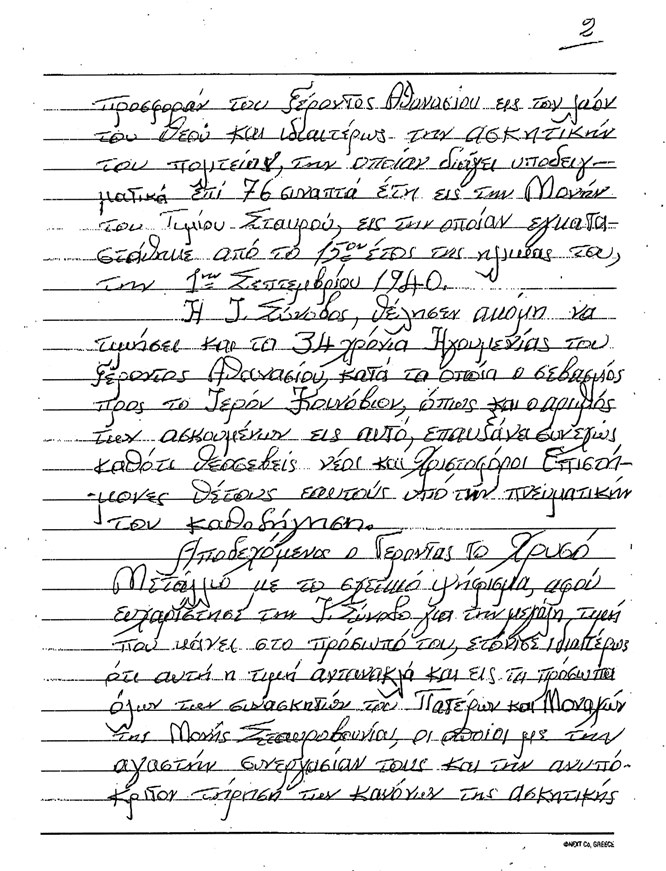 2
προσφοράν του Γέροντος Αθανασίου εις τον λαόν
του Θεού και ιδιαιτέρως την ασκητικήν
του πολιτείαν, την οποίαν διάγει υποδειγ-
ματικά επί 76 συναπτά έτη εις την Μονήν
του Τιμίου Σταυρού, εις την οποίαν εγκατα-
στάθηκε από το 15ον έτος της ηλικίας του,
την 1ην Σεπτεμβρίου 1940.
Η Ι. Σύνοδος, θέλησεν ακόμη να
τιμήσει και τα 34 χρόνια Ηγουμενίας του
Γέροντος Αθανασίου, κατά τα οποία ο σεβασμός
προς το Ιερόν Κοινόβιον, όπως και ο αριθμός
των ασκουμένων εις αυτό, επαυξάνει συνεχώς
καθότι θεοσεβείς νέοι και Χριστοφόροι Επιστή-
μονες θέτους εαυτούς υπό την πνευματικήν
του καθοδήγηση.
Αποδεχόμενος ο Γέροντας το Χρυσό
Μετάλλιο με το σχετικό ψήφισμα, αφού
ευχαρίστησε την Ι. Σύνοδο για την μεγάλη τιμή
που κάνει στο πρόσωπό του, ετόνισε ιδιαιτέρως
ότι αυτή η τιμή αντανακλά και εις τα πρόσωπα
όλων των συνασκητών του Πατέρων και Μοναχών
της Μονής Σταυροβουνίου, οι οποίοι με την
αγαστήν συνεργασίαν τους και την ανυπό-
κριτον τήρηση των κανόνων της ασκητικής
©NEXT Co, GREECE